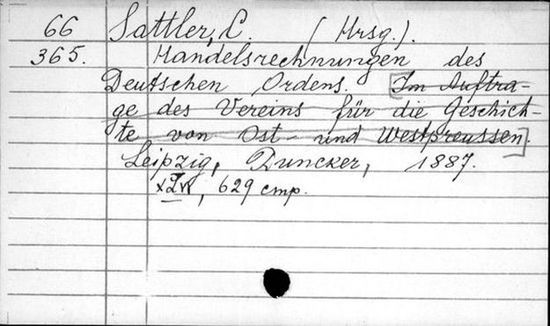 66 Sattler, C. (Hrsg.).
365. Handelsrechnungen des
Deutschen Ordens. [Im Auftra-
ge des Vereins für die Geschich-
te von Ost- und Westpreussen].
Leipzig, Duncker, 1887.
629 cmp.